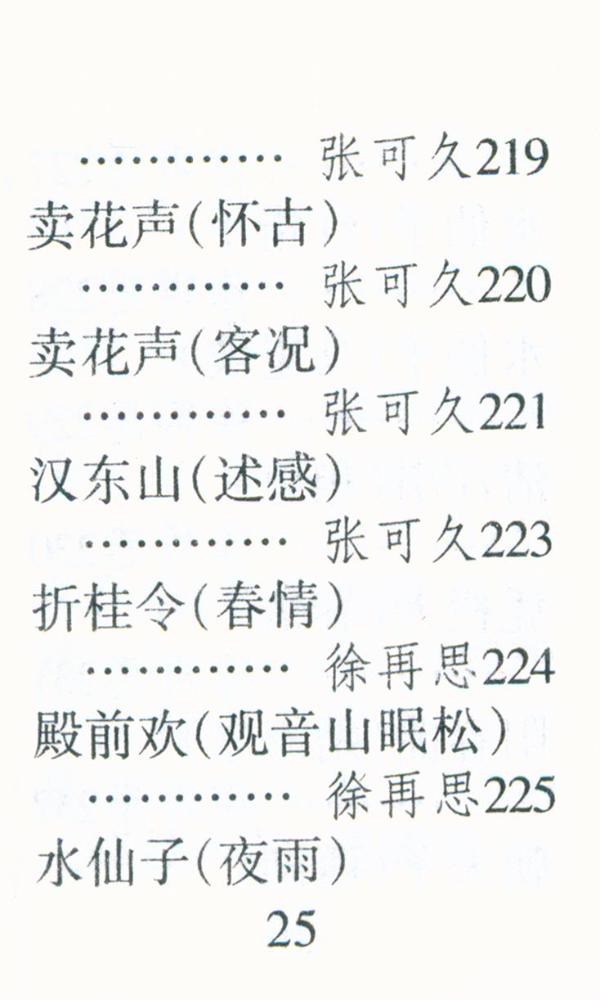 ………… 张可久219
卖花声(怀古)
………… 张可久220
卖花声(客况)
………… 张可久221
汉东山(述感)
………… 张可久223
折桂令(春情)
………… 徐再思224
殿前欢(观音山眠松)
………… 徐再思225
水仙子(夜雨)
25